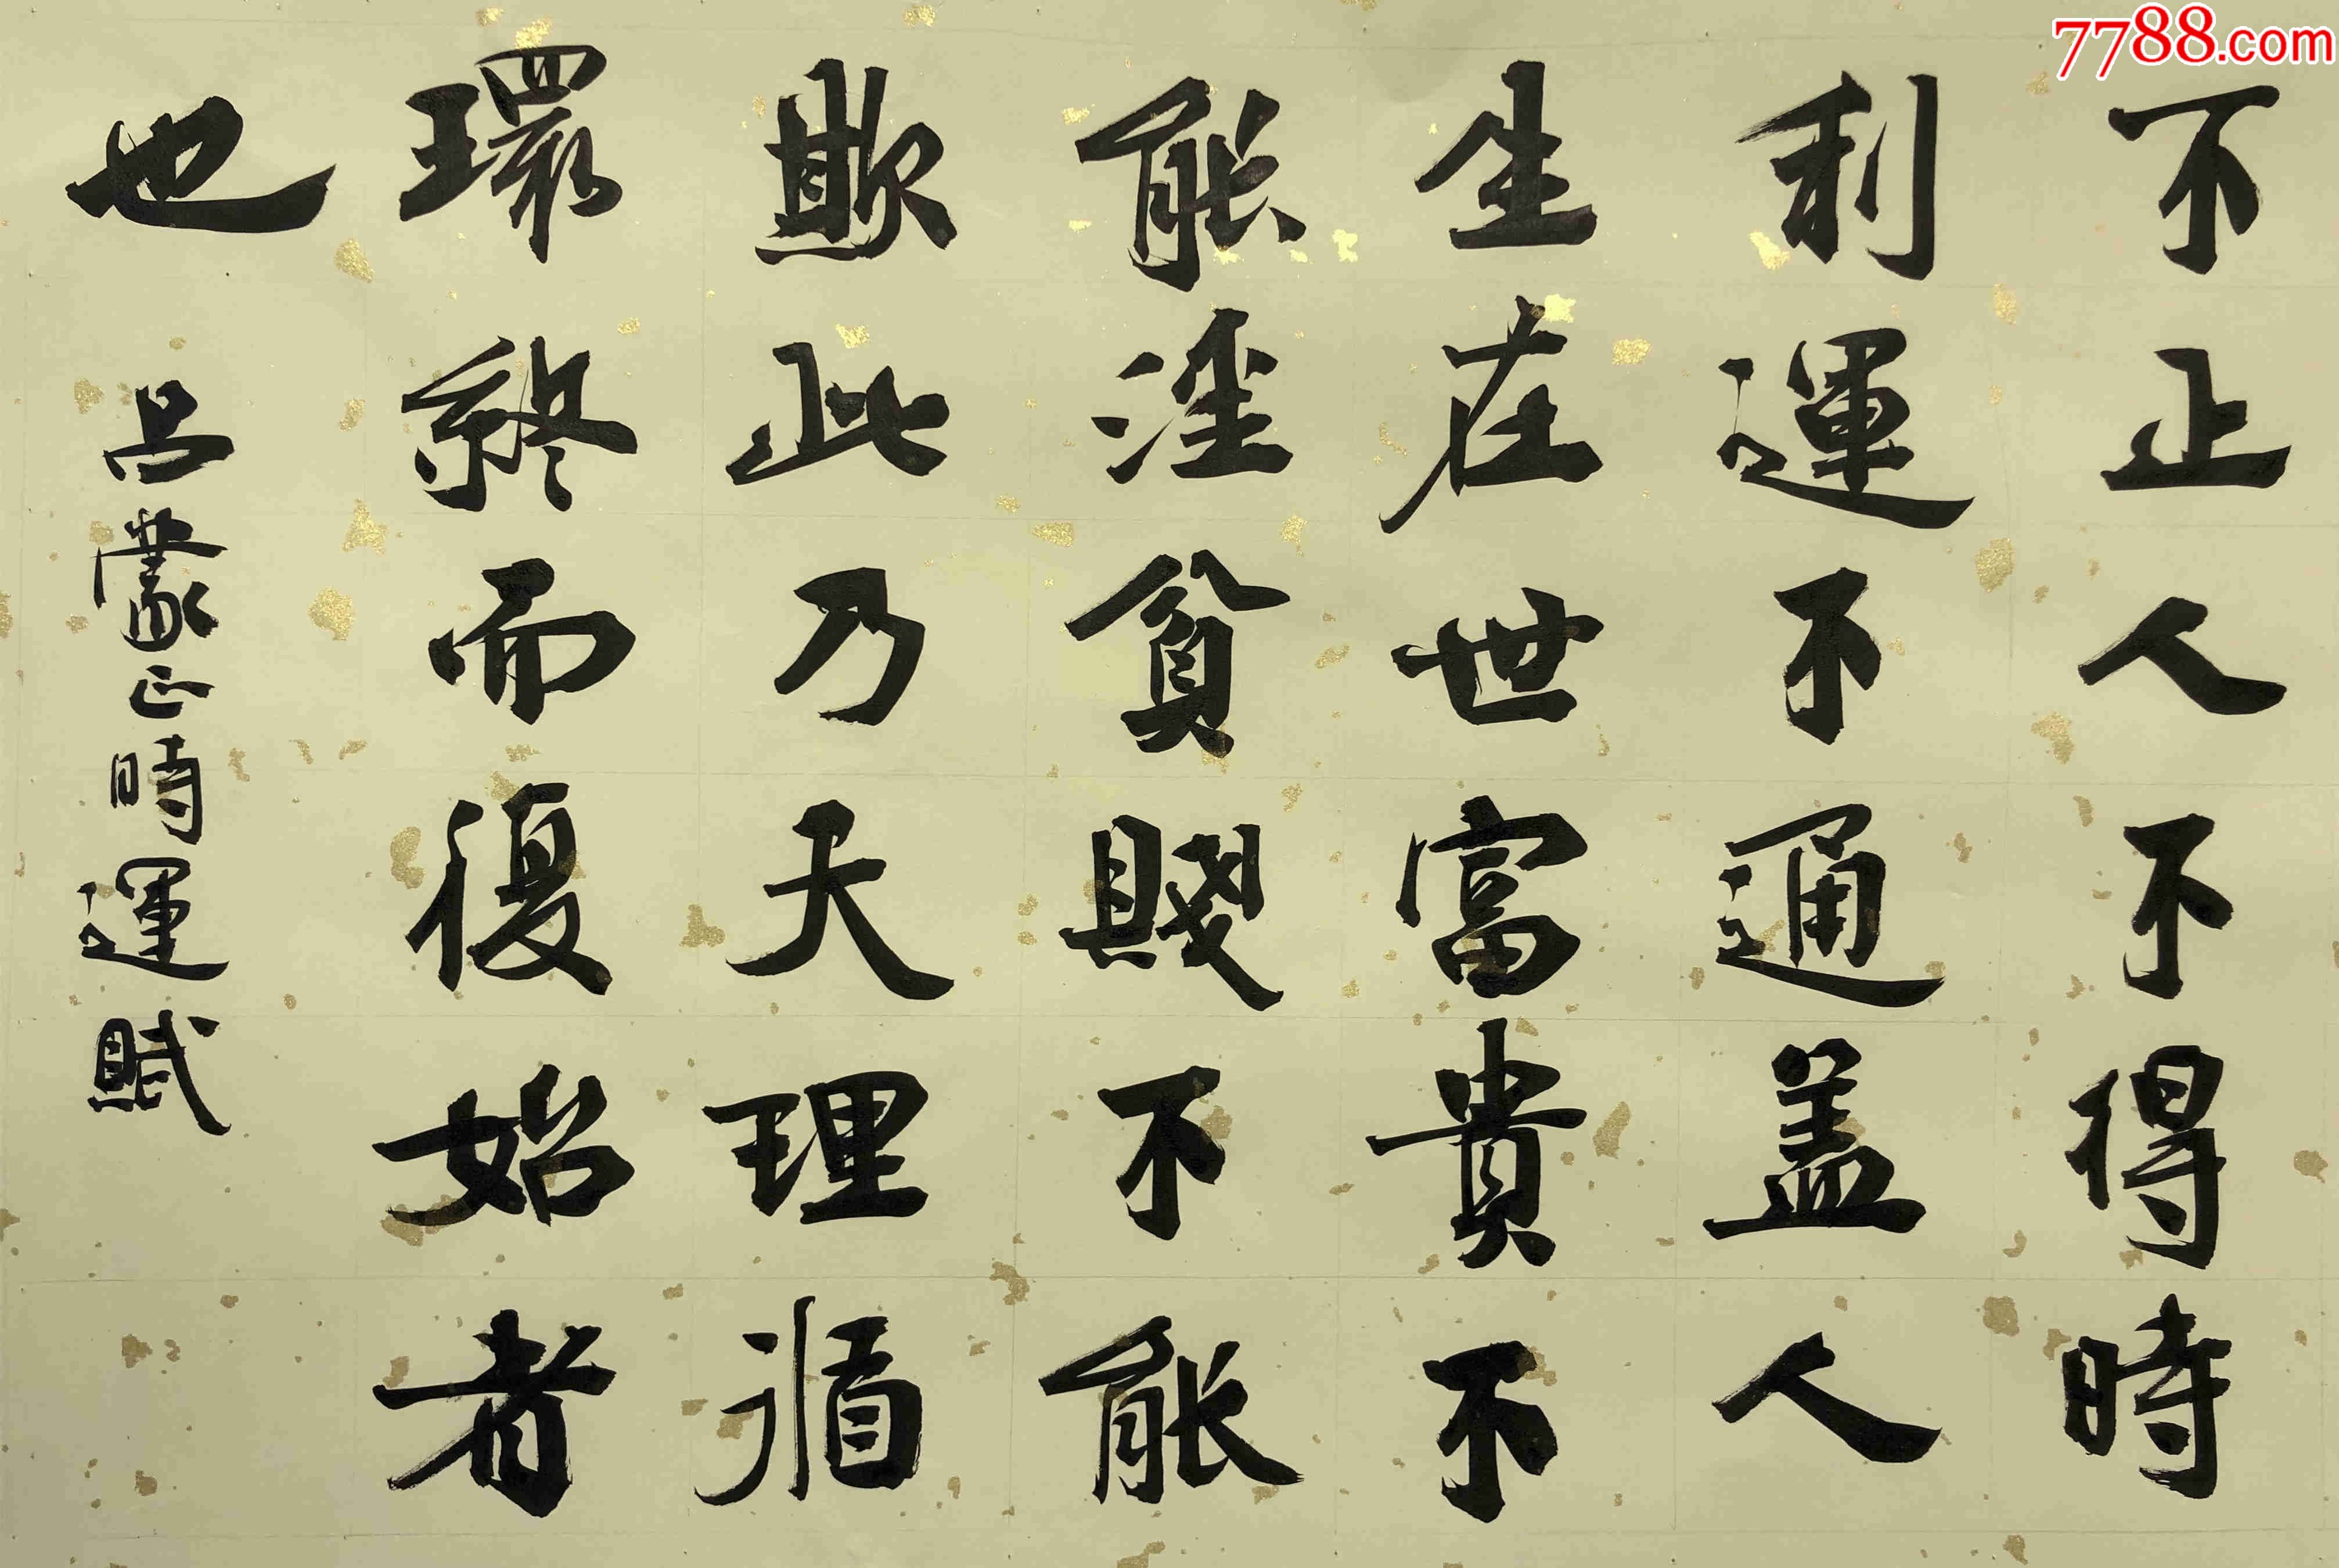 不止人不得時
利運不通盖人
生在世富貴不
能淫貧賤不能
欺此乃天理循
環終而復始者
也
吕蒙正時運賦
7788.com